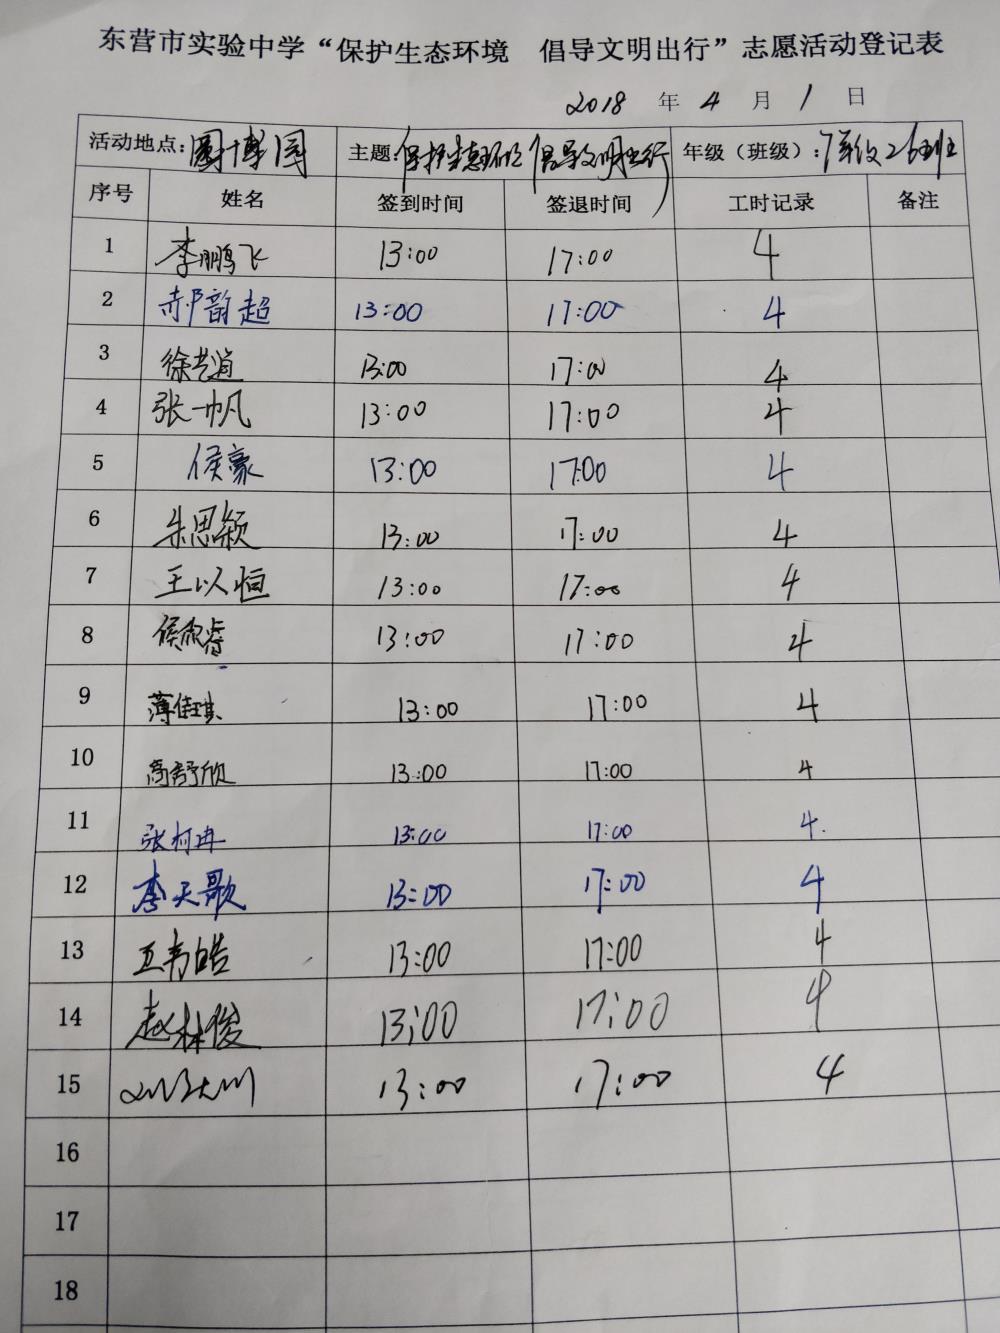 东营市实验中学“保护生态环境 倡导文明出行”志愿活动登记表
2018 年 4 月 1 日
活动地点: 园博园 主题: 保护生态环境 倡导文明出行 年级（班级）: 7年级26班
序号 姓名 签到时间 签退时间 工时记录 备注
1 李鹏飞 13:00 17:00 4
2 郝韵超 13:00 17:00 4
3 徐艺 13:00 17:00 4
4 张一帆 13:00 17:00 4
5 侯豪 13:00 17:00 4
6 朱思颖 13:00 17:00 4
7 王以恒 13:00 17:00 4
8 侯 睿 13:00 17:00 4
9 薄佳琪 13:00 17:00 4
10 高舒欣 13:00 17:00 4
11 张柯冉 13:00 17:00 4.
12 李天歌 13:00 17:00 4
13 皓 13:00 17:00 4
14 赵林俊 13:00 17:00 4
15 13:00 17:00 4
16
17
18